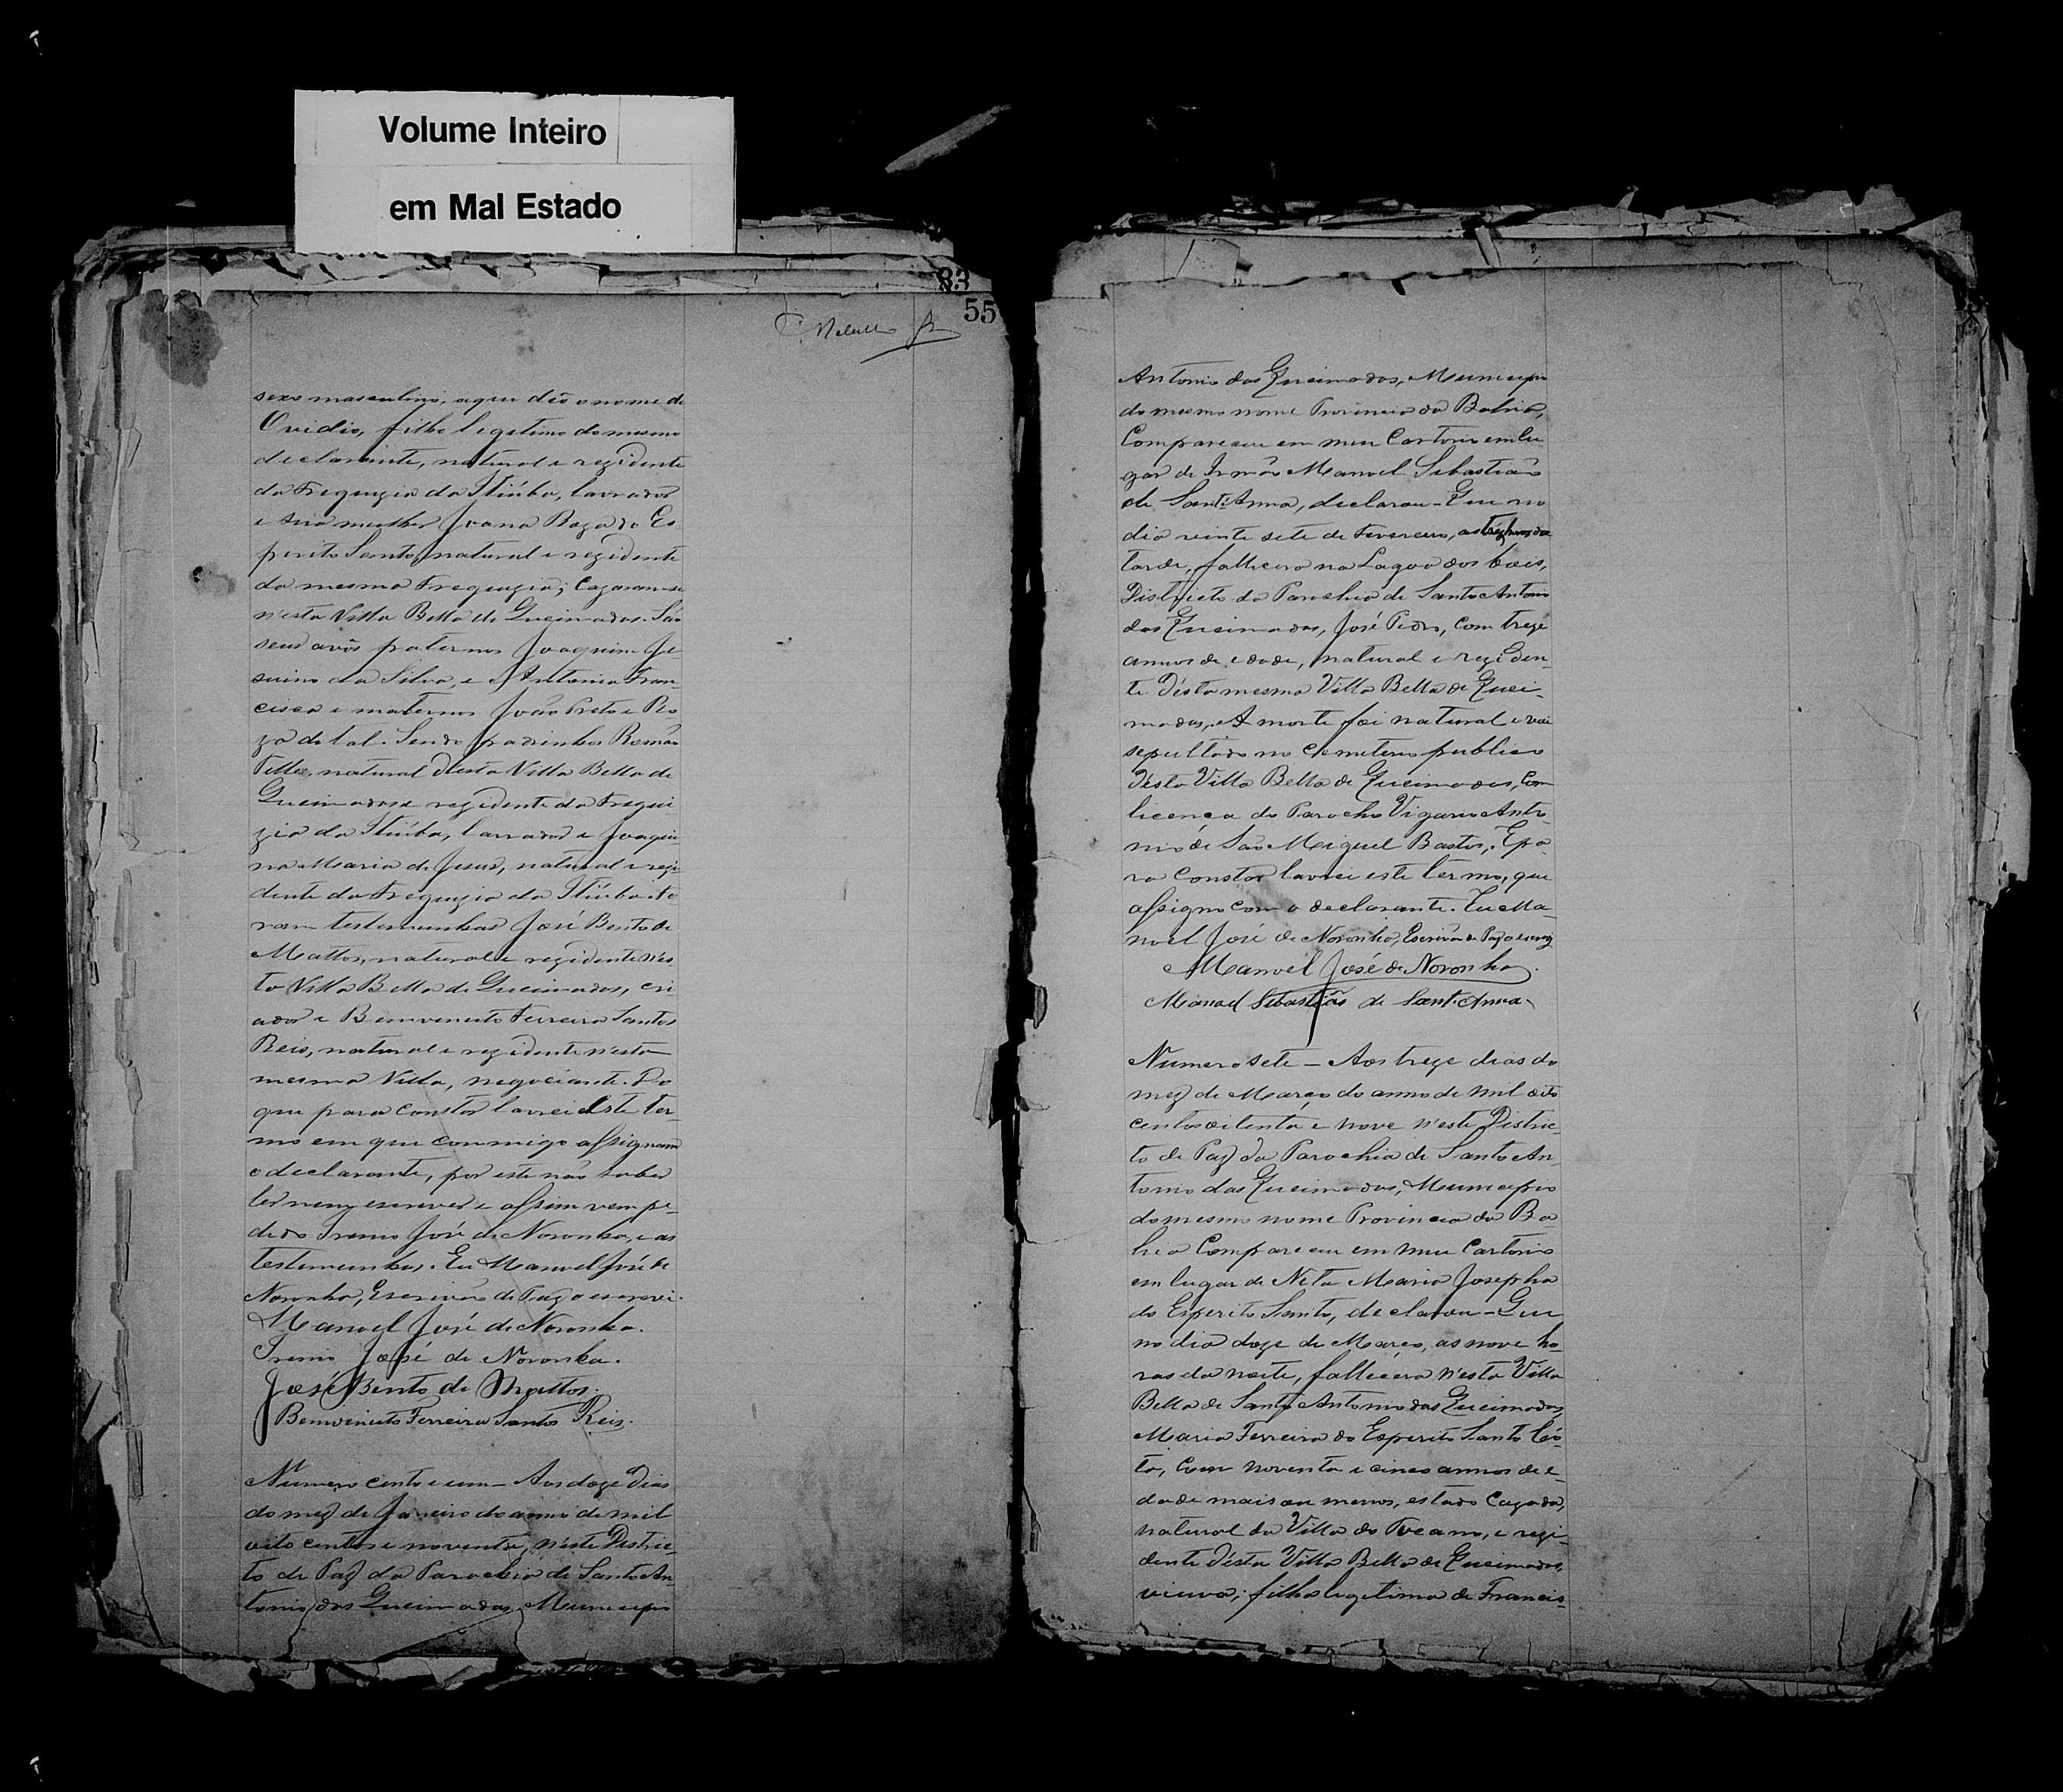 Volume Inteiro
em Mal Estado
83
55
sexo masculino, a que deo o nome de
Ovidio, filho legitimo do mesmo
declarante, natural e rezidente
da Freguezia da Itiúba, lavrador
e sua mulher Joana Roza do Es
perito Santo, natural e rezidente
da mesma Freguezia; Cazaram-se
n'esta Villa Bella de Queimadas. São
seus avós paternos Joaquim Je-
suino da Silva, e Antonia Fran-
cisca e maternos João Preto e Ro-
za de tal. Sendo padrinhos Romão
natural desta Villa Bella de
Queimadas e rezidente da Fregue-
zia da Itiúba, lavrador e Joaqui-
na Maria de Jesus, natural e rezi-
dente da Freguezia da Itiúba. Fo
ram testemunhas José Bento de
Mattos, natural e rezidente n'es-
ta Villa Bella de Queimadas, cri-
ador e Bemvenuto Ferreira Santos
Reis, natural e rezidente n'esta
mesma Villa, negociante. Do
que para constar lavrei este ter-
mo em que commigo assignam
o declarante, por este não saber
ler nem escrever e assim vem pe-
dido Irenio José de Noronha, e as
testemunhas. Eu Manoel José de
Noronha, Escrivão de Paz o escrevi.
Manoel José de Noronha.
Irenio José de Noronha.
José Bento de Mattos.
Bemvenuto Ferreira Santos Reis.
Numero cento e um - Aos doze dias
do mez de Janeiro do anno de mil
oito centos e noventa, n'este Distric-
to de Paz da Parochia de Santo An-
tonio das Queimadas, Municipio
Antonio das Queimadas, Municipio
do mesmo nome Provincia da Bahia,
Compareceu em meu Cartorio em lu
gar de Irmão Manoel Sebastião
de Sant'Anna, declarou - Que no
dia vinte sete de Fevereiro, as tres horas da
tarde, fallecera na Lagoa dos bois,
Districto da Parochia de Santo Antonio
das Queimadas, José Pedro, com treze
annos de edade, natural e reziden-
te d'ésta mesma Villa Bella de Quei-
madas, A morte foi natural e vai
sepultado no Cemiterio publico
d'ésta Villa Bella de Queimadas, com
licença do Parocho Vigario Anto-
nio de São Miguel Bastos, E pa-
ra constar lavrei este termo, que
assigno com o declarante. Eu Ma-
noel José de Noronha, Escrivão de Paz o escrevi
Manoel José de Noronha.
Manoel Sebastião de Sant'Anna.
Numero sete - Aos treze dias do
mez de Março do anno de mil oito
centos oitenta e nove n'este Distric-
to de Paz da Parochia de Santo An-
tonio das Queimadas, Municipio
do mesmo nome Provincia da Ba
hia Compareceu em meu Cartorio
em lugar de Neta Maria Josepha
do Esperito Santo, declarou - Que
no dia doze de Março, as nove ho-
ras da noite, fallecera n'esta Villa
Bella de Santo Antonio das Queimadas,
Maria Ferreira do Esperito Santo Có-
ta, com noventa e cinco annos de e-
dade mais ou menos, estado Cazada,
natural da Villa do Tucano, e rezi-
dente d'ésta Villa Bella de Queimadas,
viuva; filha legitima de Francis-